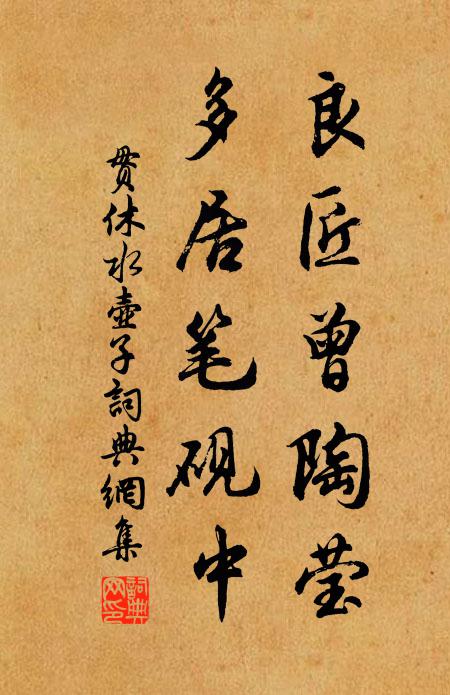 良匠曾陶莹
多居笔砚中
贯休水壶子詞典網集
詞典网印